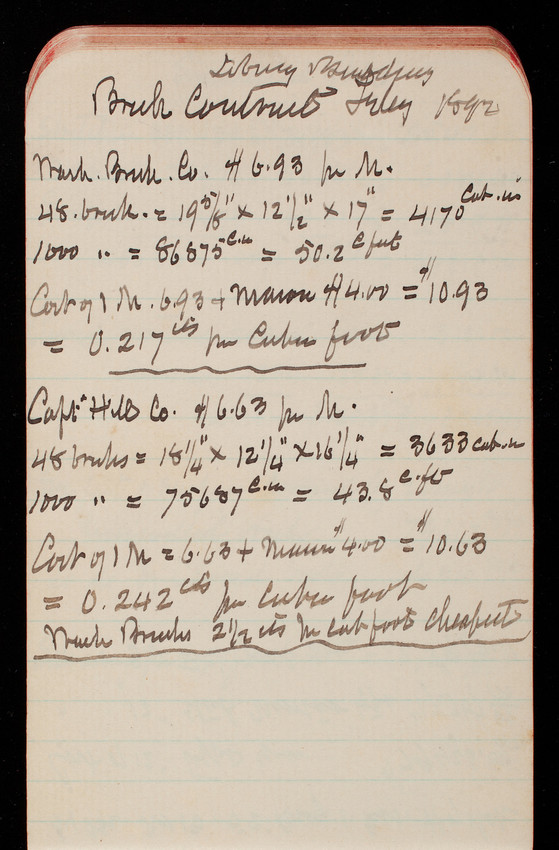 Library Building
Brick Contract July 1892
Wash. Brick. Co. $6.93 per M.
48. brick. = 19 5/8" x 12 1/2" x 17" = 4170 Cub. in
1000 " = 86875 C. in = 50.2 C feet
Cost of 1 M. 6.93 + Mason $4.00 = $10.93
= 0.217 cts per Cubic foot
Capt Hill Co. $6.63 per M.
48 bricks = 18 1/4" x 12 1/4" x 16 1/4" = 3633 cub. in
1000 " = 75687 C. in = 43.8 c. ft
Cost of 1 M = 6.63 + Mason $4.00 = $10.63
= 0.242 cts per cubic foot
Wash Bricks 2 1/2 cts per cub foot cheapest